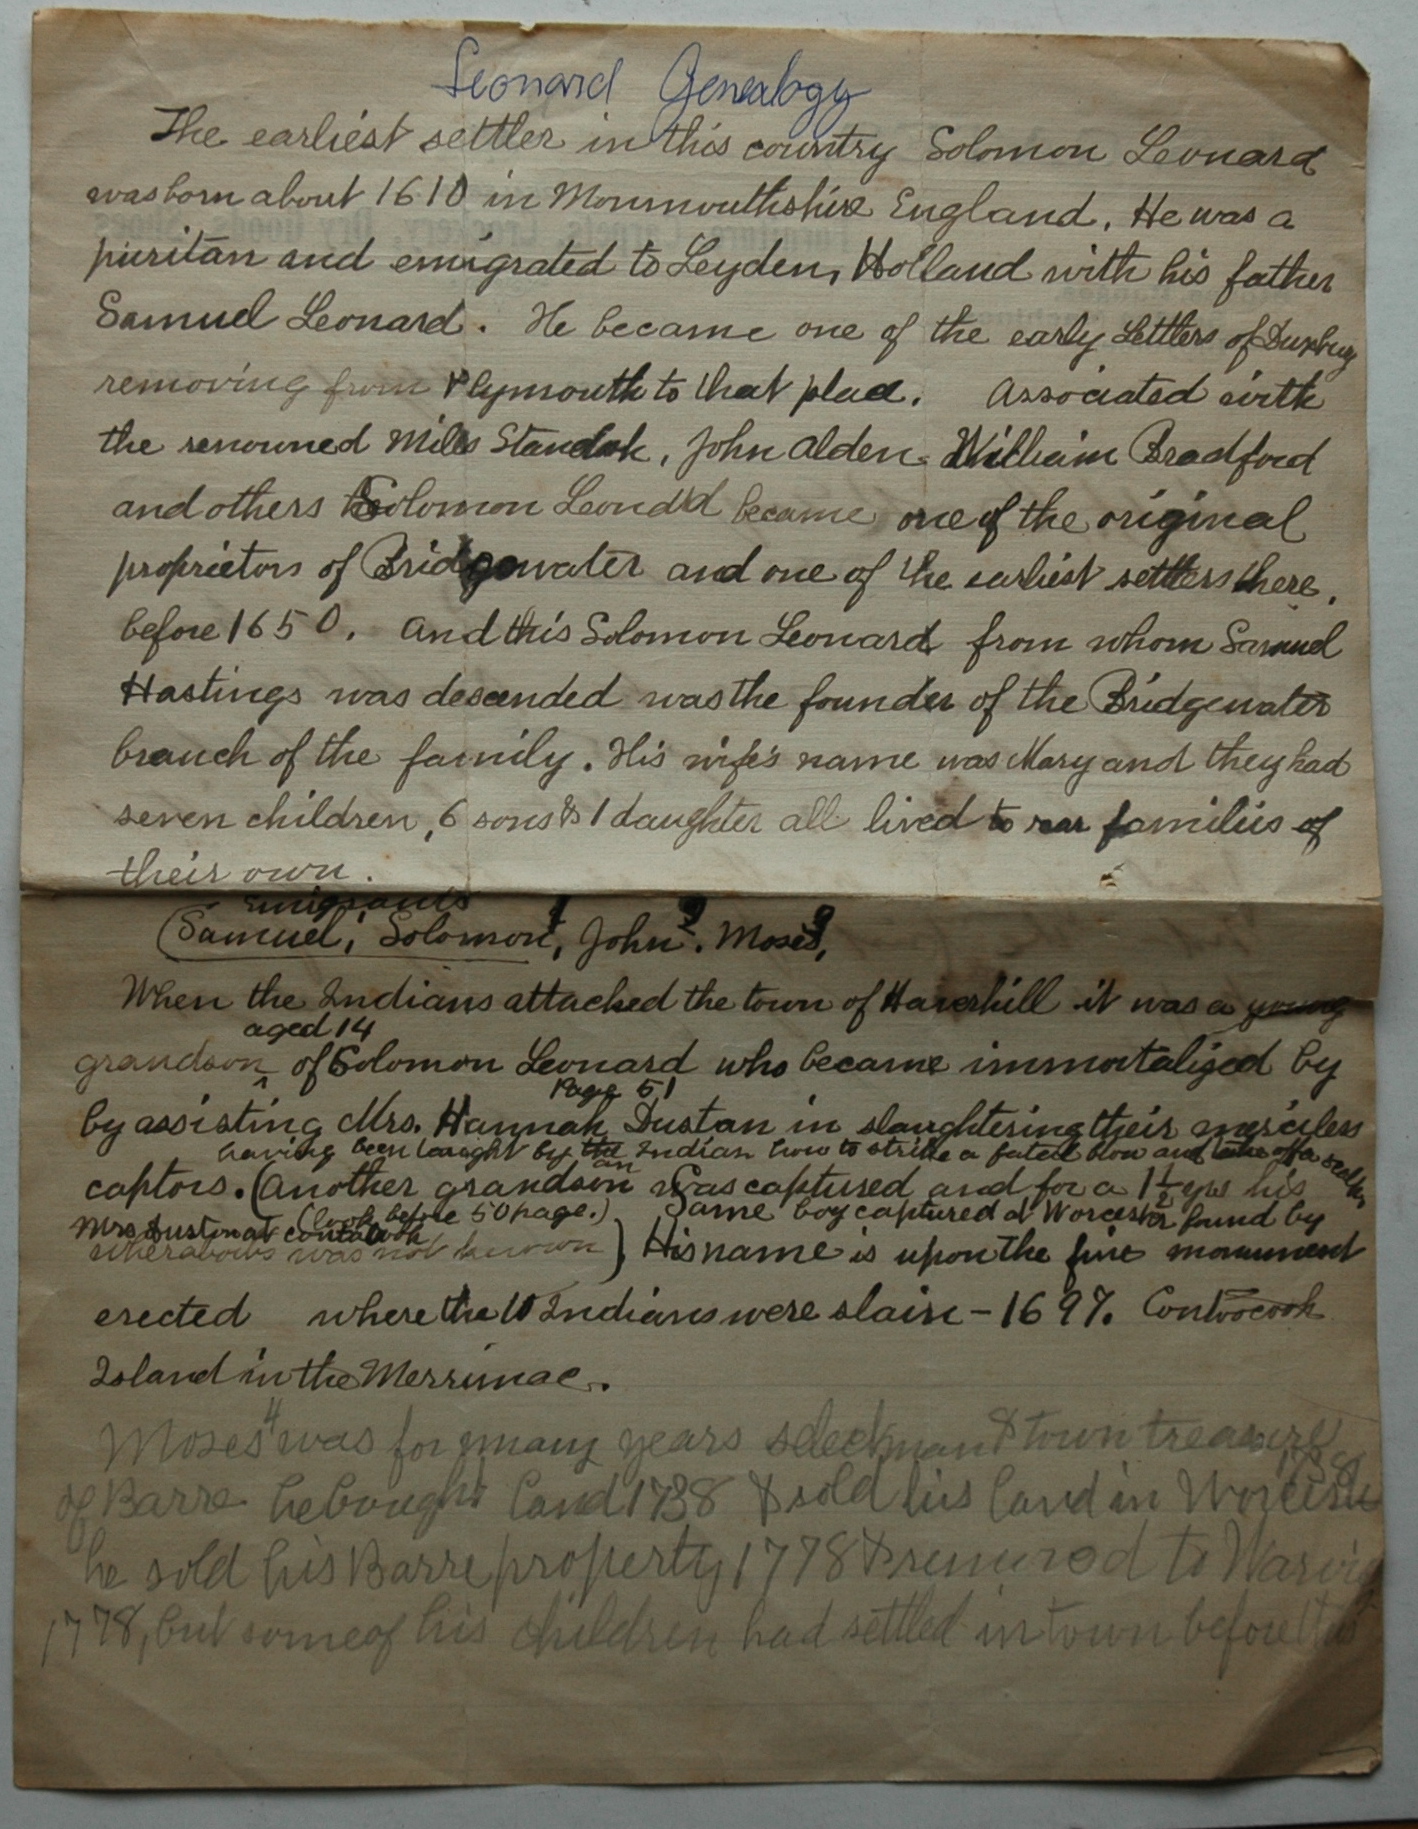 Leonard Genealogy
The earliest settler in this country Solomon Leonard
was born about 1610 in Monmouthshire England. He was a
puritan and emigrated to Leyden, Holland with his father
Samuel Leonard. He became one of the early settlers of Duxbury
removing from Plymouth to that place. Associated with
the renowned Miles Standish, John Alden William Bradford
and others Solomon Leonard became one of the original
proprietors of Bridgewater and one of the earliest settlers there.
before 1650. And this Solomon Leonard from whom Samuel
Hastings was descended was the founder of the Bridgewater
branch of the family. His wife's name was Mary and they had
seven children, 6 sons & 1 daughter all lived to rear families of
their own.
Emigrants
(Samuel, Solomon, John. Moses,
When the Indians attacked the town of Haverhill it was a young
aged 14
grandson of Solomon Leonard who became immortalized by
Page 51
by assisting Mrs. Hannah Dustan in slaughtering their merciless
having been taught by the an Indian how to strike a fated blow and take off a scalp.
captors. (Another grandson was captured and for a 1 1/2 yrs his
(look before 50 page.) Same boy captured at Worcester found by
Mrs Dustin at
wherabouts was not known) His name is upon the fine monument
erected where the 10 Indians were slain - 1697. Contoocook
Island in the Merrimac.
Moses 4 was for many years selectman & town treasure
of Barre he bought land 1738 & sold his land in Worcester
he sold his Barre property 1778 & removed to Warwic
1778, but some of his children had settled in town before